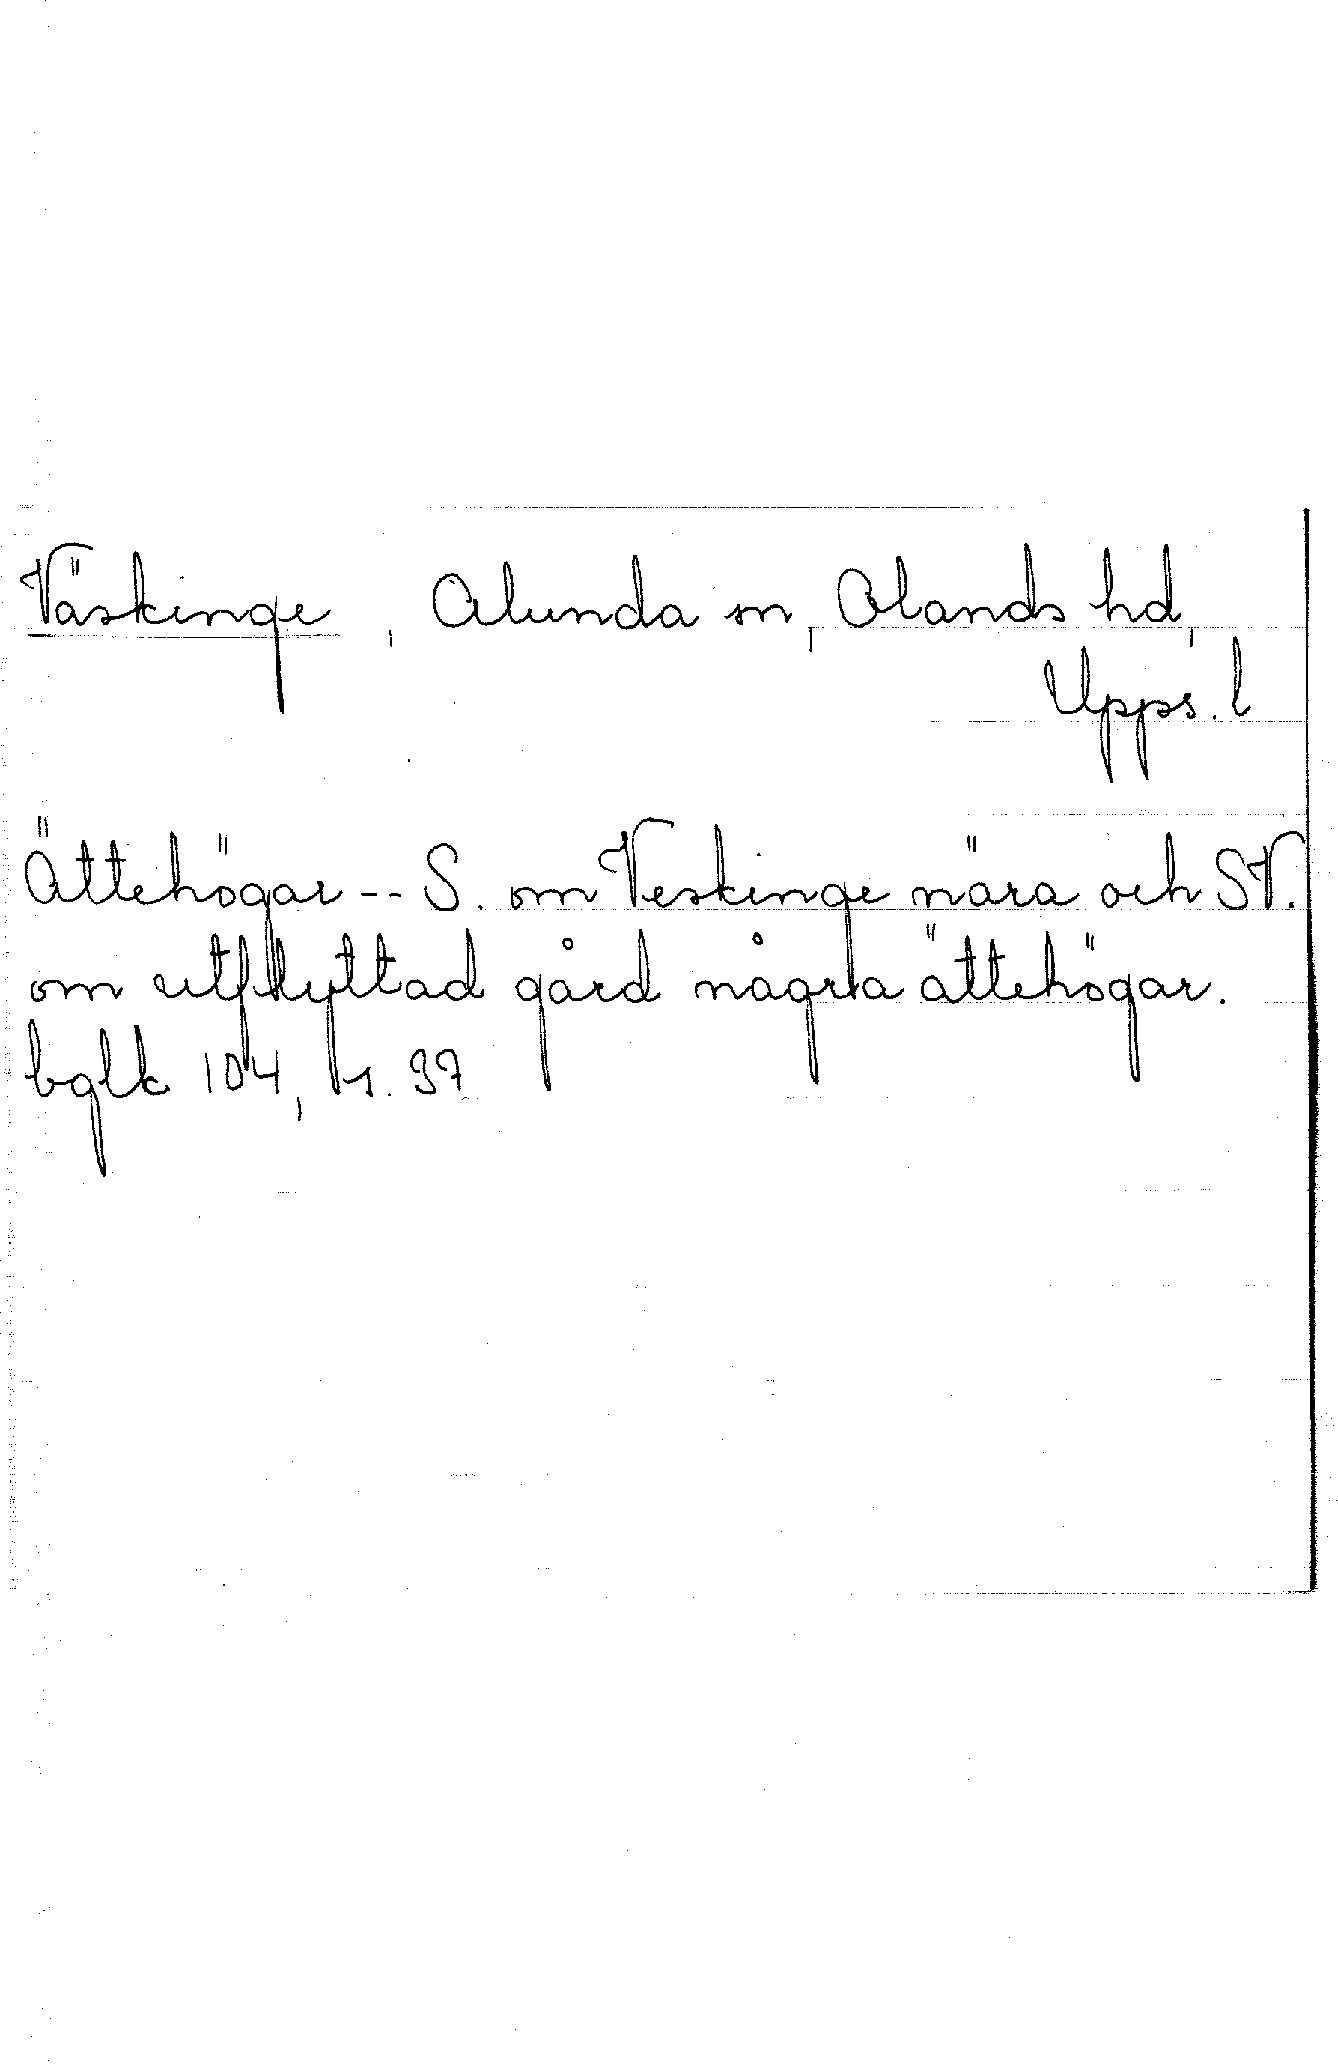 Väskinge, Alunda sn, Olands hd,
Upps. l
Ättehögar -- S. om Veskinge nära och SV.
om utflyttad gård några ättehögar.
bglk 104, s. 97